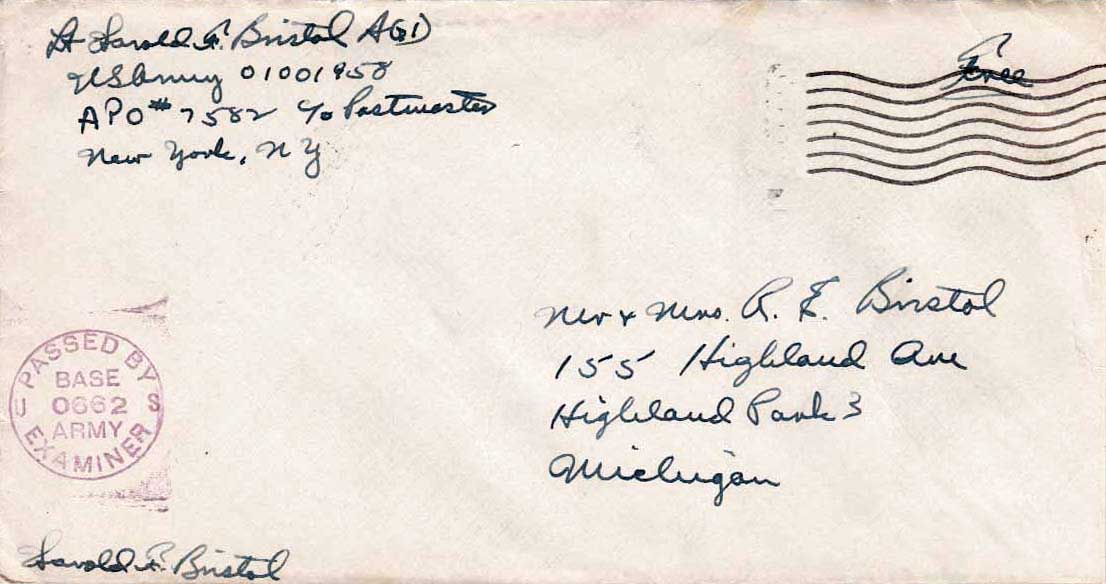 Lt Harold F. Bristol AGD
US Army 01001958
APO # 7582 c/o Postmaster
New York, N Y
Free
Mr & Mrs. R. E. Bristol
155 Highland Ave
Highland Park 3
Michigan
PASSED BY
BASE
0662
U S
ARMY
EXAMINER
Harold F. Bristol